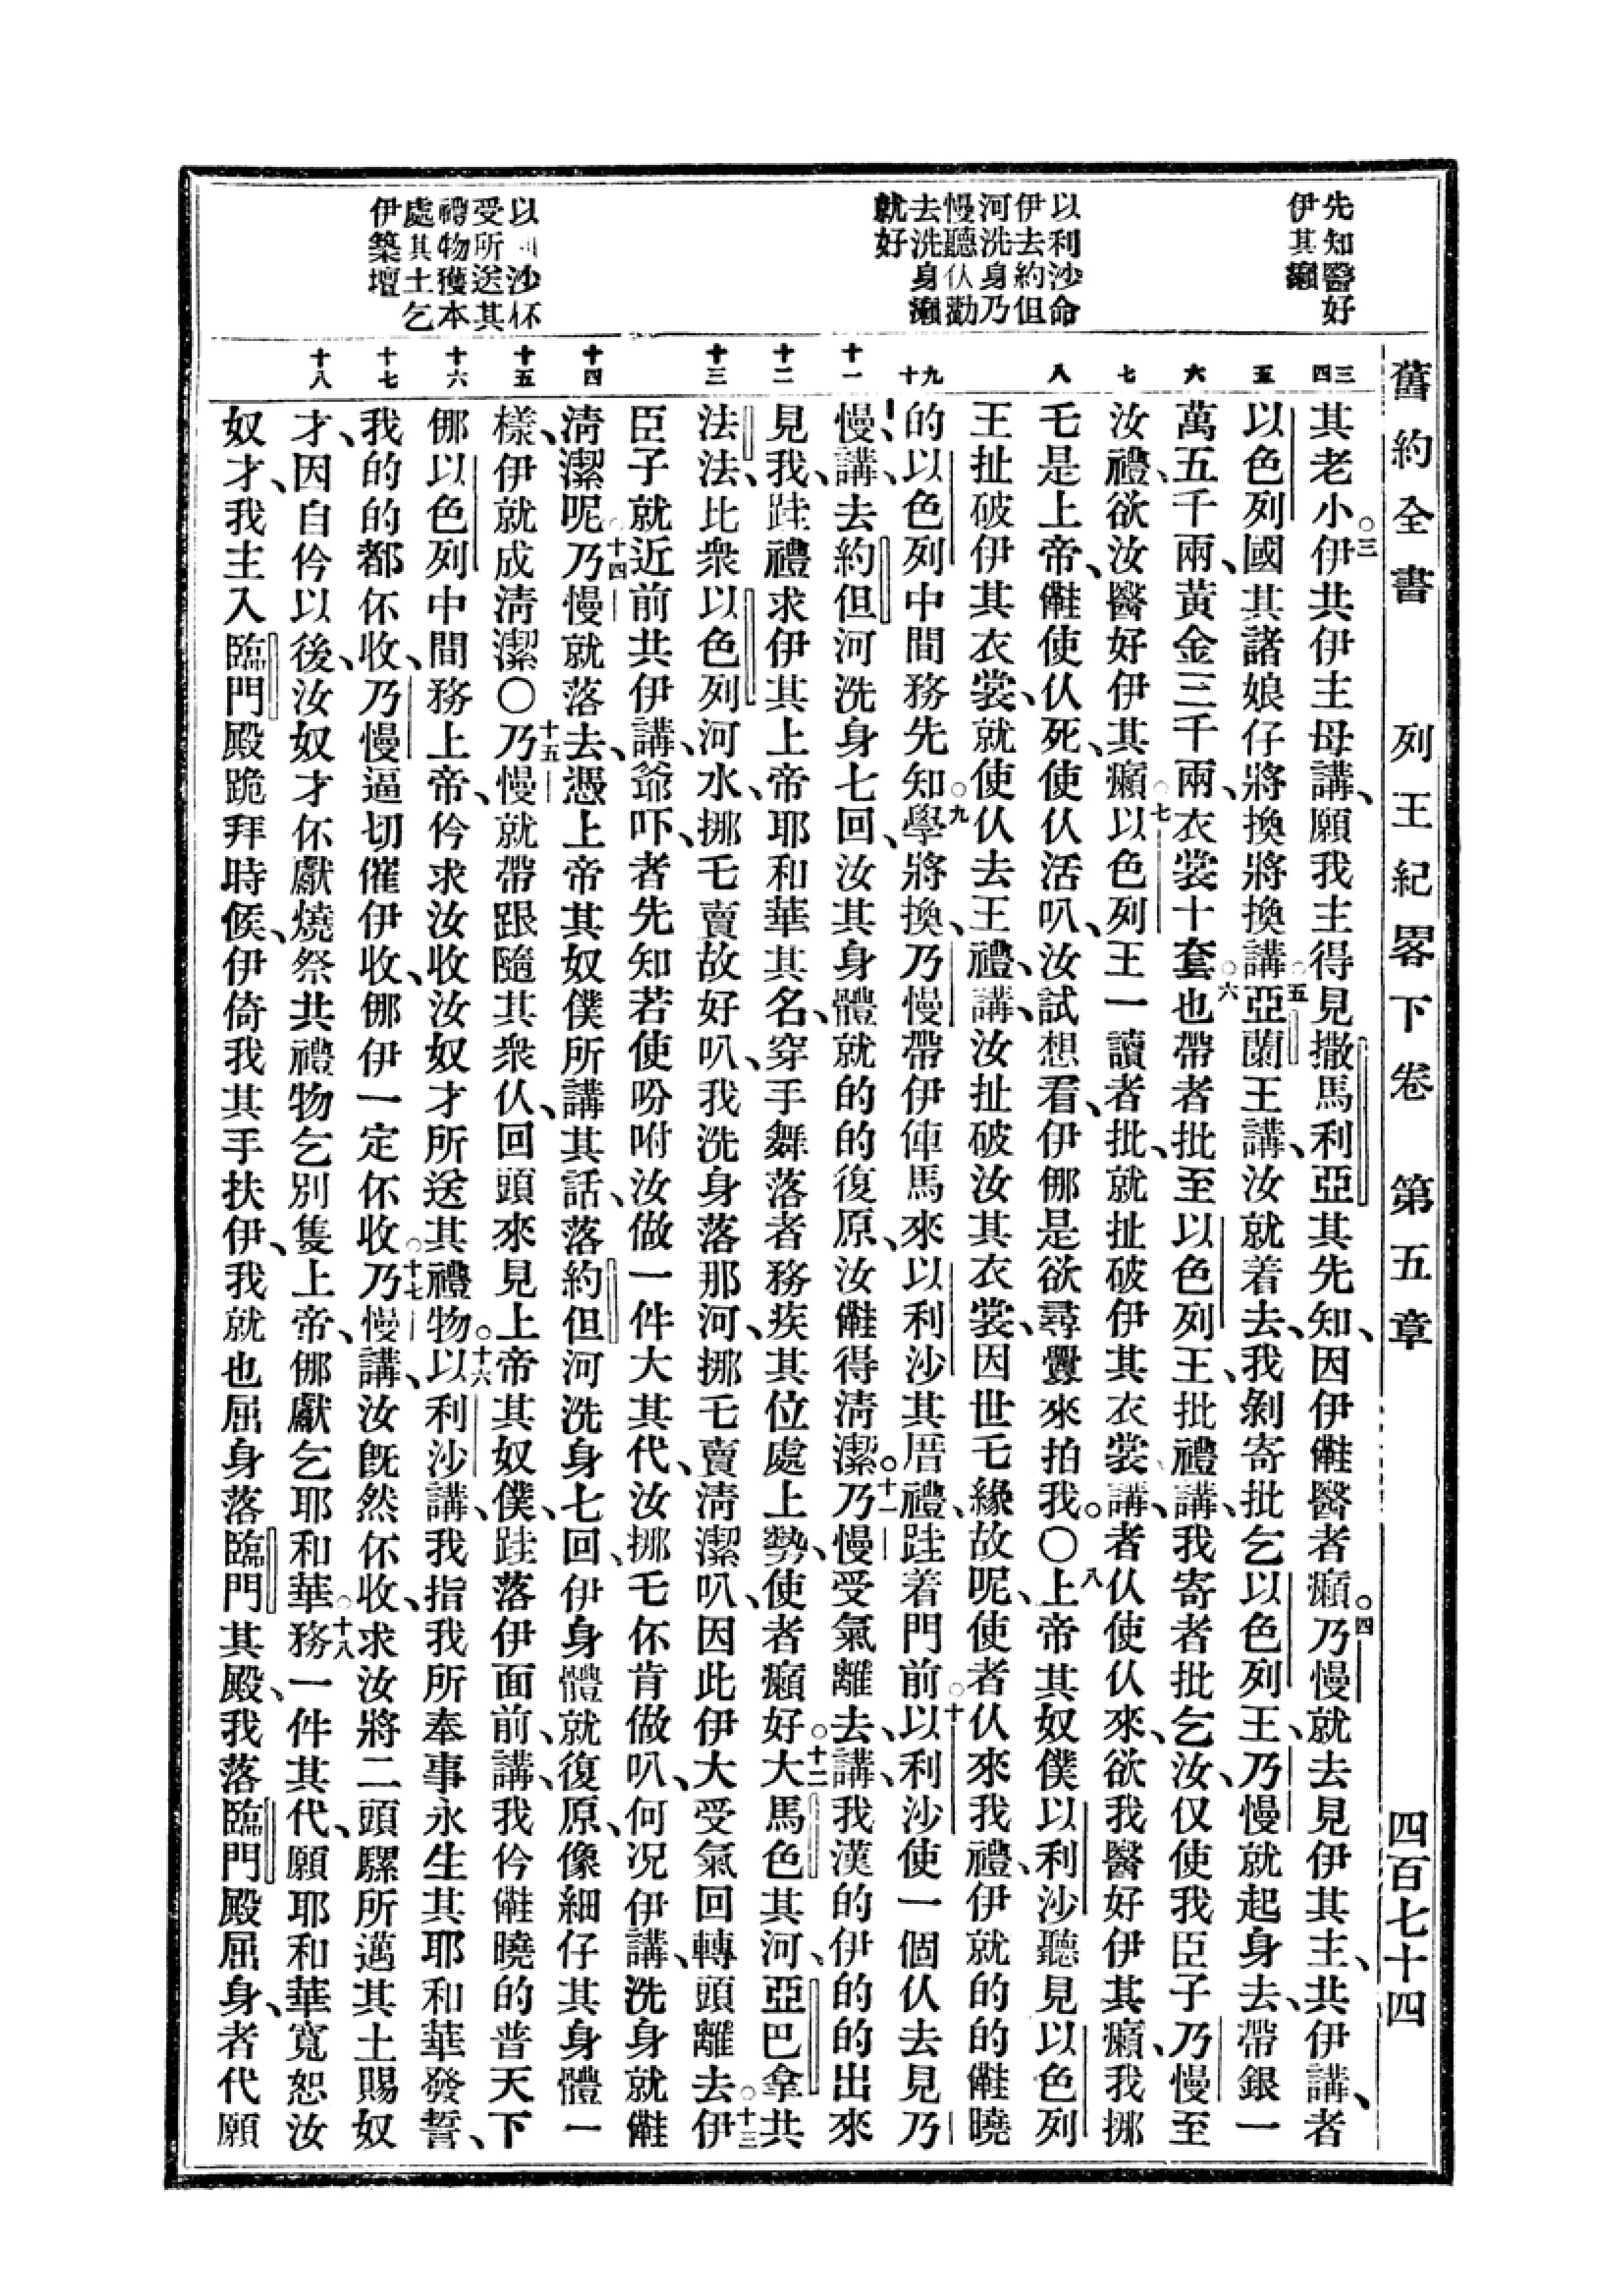 舊約全書　列王紀畧下卷　第五章　四百七十四
先知醫好
伊其癩
以利沙命
伊去約但
河洗身乃
慢聽仈勸
去洗身癩
就好
以利沙伓
受所送其
禮物獲本
處其土乞
伊築壇
三
四
五
六
七
八
九
十
十一
十二
十三
十四
十五
十六
十七
十八
其老小。三伊共伊主母講、願我主得見撒馬利亞其先知、因伊𠆧醫者癩。四乃慢就去見伊其主、共伊講、者
以色列國其諸娘仔將換將換講。五亞蘭王講、汝就着去、我剝寄批乞以色列王、乃慢就起身去、帶銀一
萬五千兩、黃金三千兩、衣裳十套。六也帶者批至以色列王、批禮講、我寄者批乞汝、仅使我臣子乃慢至
汝禮、欲汝醫好伊其癩。七以色列王一讀者批、就扯破伊其衣裳、講、者仈使仈來、欲我醫好伊其癩、我挪
乇是上帝、𠆧使仈死、使仈活叭、汝試想看、伊挪是欲尋釁來拍我。〇八上帝其奴僕以利沙聽見以色列
王扯破伊其衣裳、就使仈去王禮、講、汝扯破汝其衣裳、因世乇緣故呢、使者仈來我禮、伊就的的𠆧曉
的以色列中間務先知。九學將換、乃慢帶伊俥馬來以利沙其厝禮、跬着門前。十以利沙使一個仈去見乃
慢、講、去約但河洗身七回、汝其身體就的的復原、汝𠆧得淸潔。十一乃慢受氣離去、講、我漢的伊的的出來
見我、跬禮求伊其上帝耶和華其名、穿手舞落者務疾其位處上勢、使者癩好。十二大馬色其河、亞巴拿共
法法、比衆以色列河水、挪乇賣故好叭、我洗身落那河、挪乇賣淸潔叭、因此伊大受氣回轉頭離去。十三伊
臣子就近前共伊講、爺吓、者先知若使吩咐汝做一件大其代、汝挪乇伓肯做叭、何况伊講、洗身就𠆧
淸潔呢。十四乃慢就落去、憑上帝其奴僕所講其話、落約但河洗身七回、伊身體就復原、像細仔其身體一
樣、伊就成淸潔〇十五乃慢就帶跟隨其衆仈、回頭來見上帝其奴僕、跬落伊面前、講、我仱𠆧曉的普天下
㑚以色列中間務上帝、仱求汝收汝奴才所送其禮物。十六以利沙講、我指我所奉事永生其耶和華發誓、
我的的都伓收、乃慢逼切催伊收、㑚伊一定伓收。十七乃慢講、汝旣然伓收、求汝將二頭騾所邁其土賜奴
才、因自仱以後、汝奴才伓獻燒祭共禮物乞別隻上帝、㑚獻乞耶和華。十八務一件其代、願耶和華寬恕汝
奴才、我主入臨門殿跪拜時候、伊倚我其手扶伊、我就也屈身落臨門其殿、我落臨門殿屈身、者代願